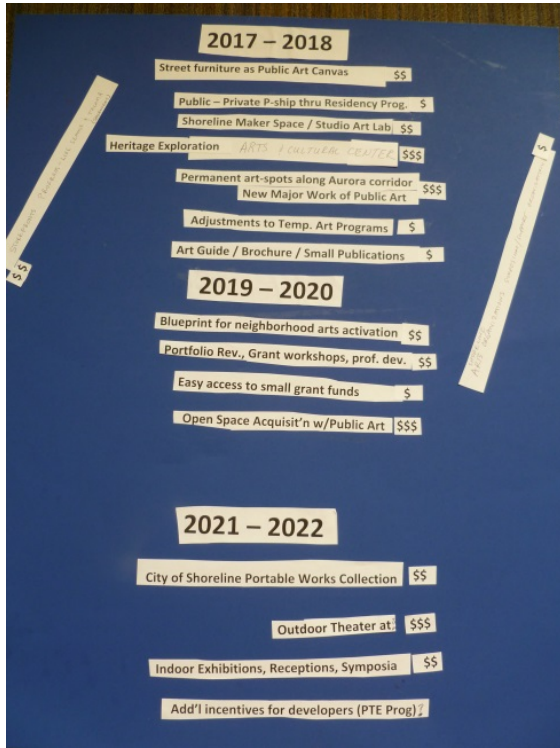 2017 – 2018
Street furniture as Public Art Canvas $$
Public – Private P-ship thru Residency Prog. $
Shoreline Maker Space / Studio Art Lab $$
Heritage Exploration ARTS / CULTURAL CENTER $$$
Permanent art-spots along Aurora corridor
New Major Work of Public Art $$$
Adjustments to Temp. Art Programs $
Art Guide / Brochure / Small Publications $
2019 – 2020
Blueprint for neighborhood arts activation $$
Portfolio Rev., Grant workshops, prof. dev. $$
Easy access to small grant funds $
Open Space Acquisit'n w/Public Art $$$
2021 – 2022
City of Shoreline Portable Works Collection $$
Outdoor Theater at: $$$
Indoor Exhibitions, Receptions, Symposia $$
Add'l incentives for developers (PTE Prog)?
$$
$